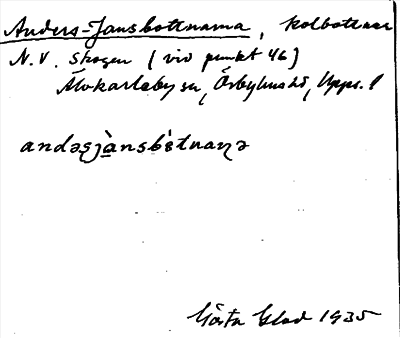 Anders-Jansbottnarna, kolbottnar
N.V. Skogen (vid punkt 46)
Älvkarleby sn, Örbyhus hd, Upps. l
Gösta Blad 1935